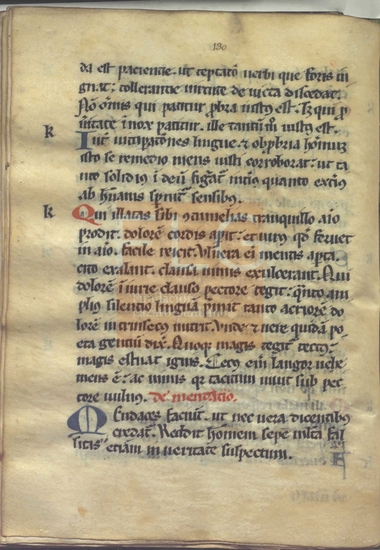 190
da est pacientie. ut ceptatoñ uerbi que foris in
grat: tollerantie uirtute de iacta discedat.
Nõ om̃is qui patitur ꝓbra iustꝰ est. Sꝫ qui ꝓ
ueritate inox patitur. ille tantũm iustꝰ est.
K Int̃ uituꝑatiões lingue. ⁊ obꝓbria hominũ
isto se remedio mens iusti corroborat: ut ta
nto solidiꝰ i deũ figat᷑ intiꝰ quanto extiꝰ
ab hũanis spnit᷑ sensibꝰ.
K Qui illatas sibi ꝯtumelias tranquillo aĩo
prodit. dolorẽ cordis aperit: ⁊ uirꝰ qd̃ feruet
in aĩo. facile reicit. Vulnera eĩ mentis aꝑta.
cito exalant. clausa nimis exulcerant. Qui
dolorẽ iniurie clauso pectore tegit: qñto am
plius silentio linguã p̃mit. tanto acriorẽ do
lorẽ intrinsecꝰ nutrit. Vnde ⁊ uere quidã po
eta gentiũ dix̃. Quoqꝫ magis tegit᷑ tectꝰ:
magis estuat ignis. Cecꝰ eĩm langor uehe
mens ẽ: ac nimis qr̃ tacitum uiuit sub pec
tore uulnꝰ. de mentatio.
Mendaces faciunt. ut nec uera dicentibꝰ
credat᷑. Reddit hominem sepe multa fal
sitas etiam in ueritate suspectum.